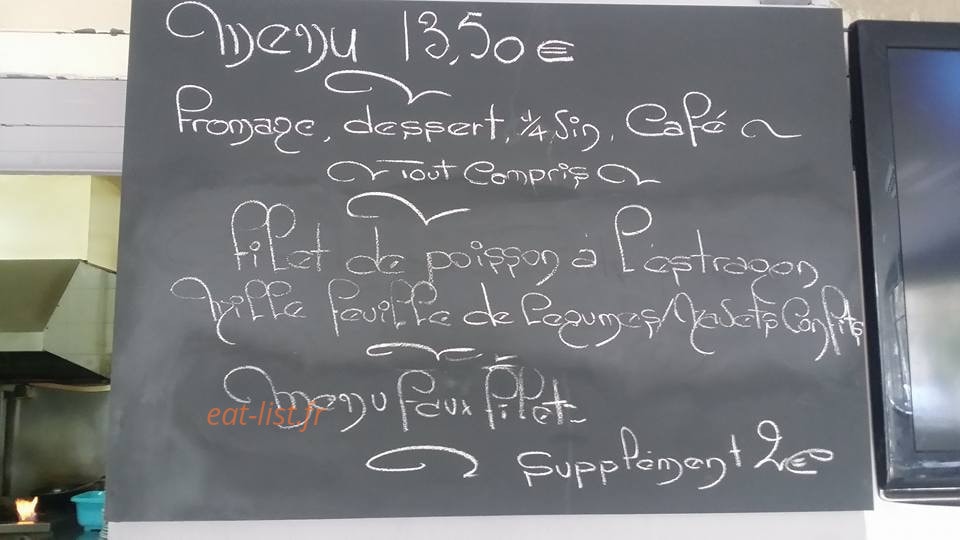 Menu 13,50€
Fromage, dessert, 1/4 Vin, Café
Tout Compris
Filet de poisson à l'éstragon
Mille feuille de legumes/Navets Confits
Menu Faux Filet
eat-list.fr
Supplément 2€